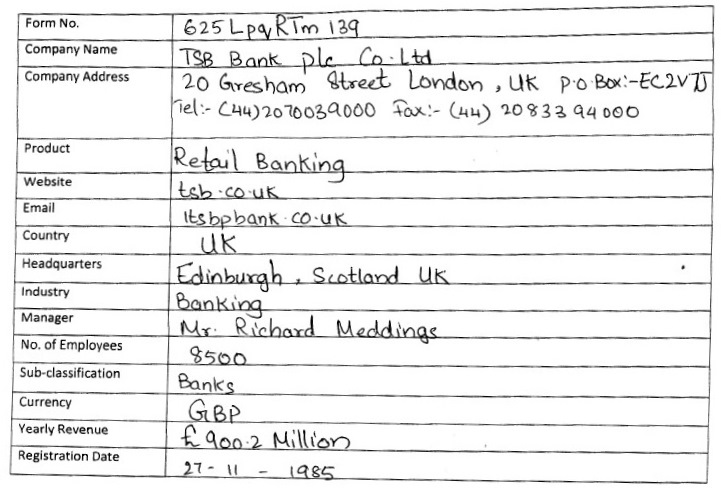 Form No. 625 LpqRTm 139
Company Name TSB Bank plc Co. Ltd
Company Address 20 Gresham Street London, UK P.O.Box:-EC2V7J
Tel:- (44)2070039000 Fax:- (44) 2083394000
Product Retail Banking
Website tsb.co.uk
Email ltsbpbank.co.uk
Country UK
Headquarters Edinburgh, Scotland UK
Industry Banking
Manager Mr. Richard Meddings
No. of Employees 8500
Sub-classification Banks
Currency GBP
Yearly Revenue £900.2 Million
Registration Date 27-11-1985